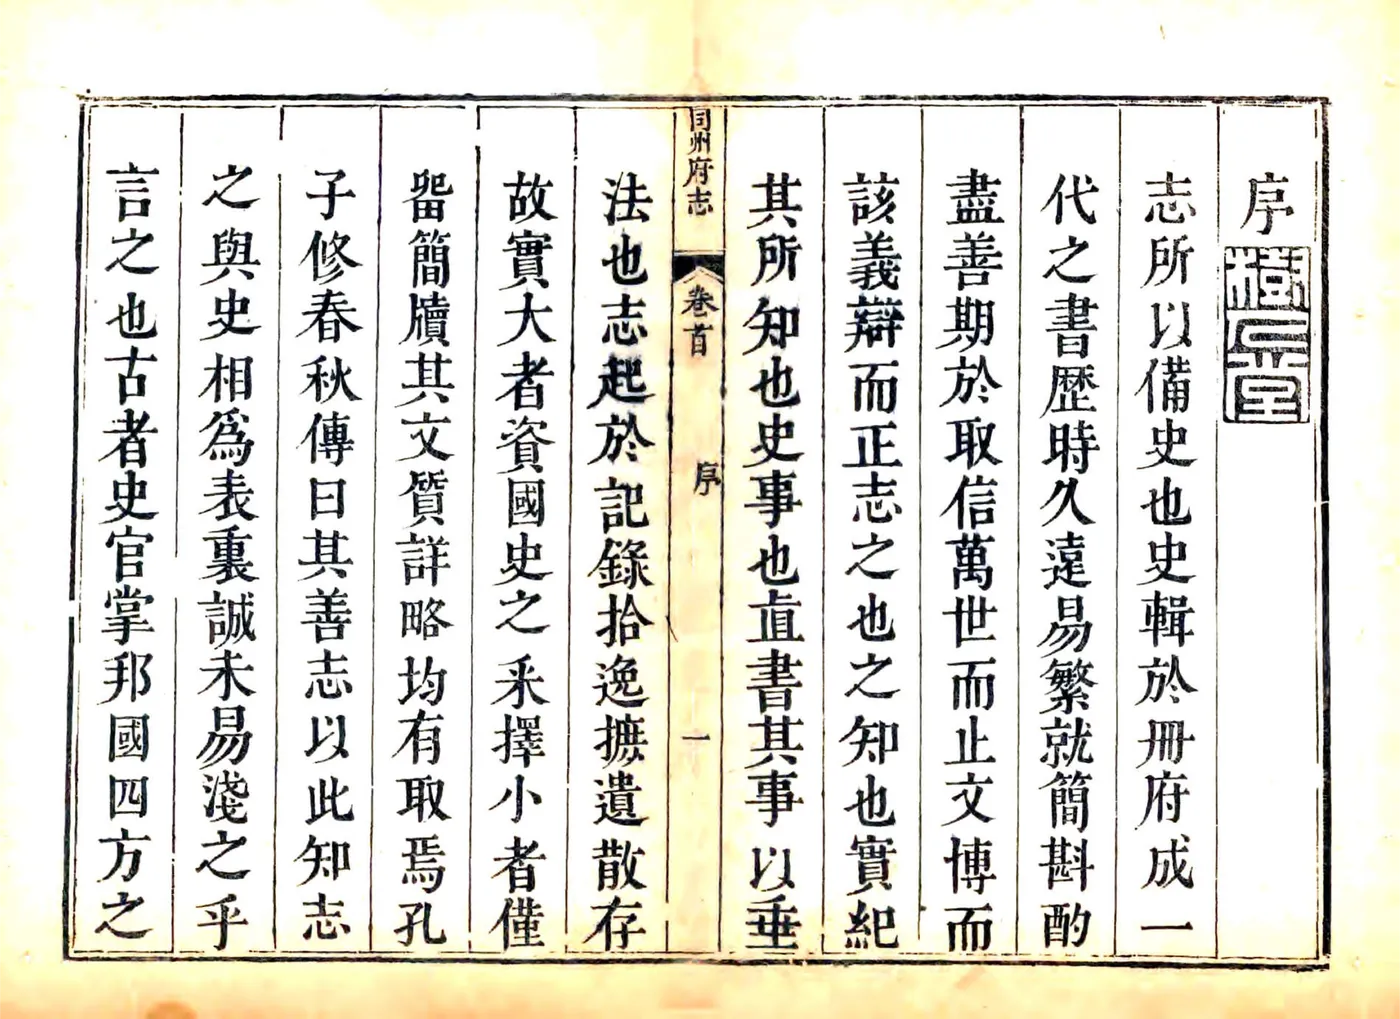 序
志所以備史也史輯於冊府成一
代之書歴時久遠易繁就簡斟酌
盡善期於取信萬世而止文博而
該義辯而正志之也之知也實紀
其所知也史事也直書其事以垂
同州府志
卷首
序
一
法也志起於記錄拾逸摭遺散存
故實大者資國史之采擇小者僅
畱簡牘其文質詳略均有取焉孔
子修春秋傳曰其善志以此知志
之與史相為表裏誠未易淺之乎
言之也古者史官掌邦國四方之